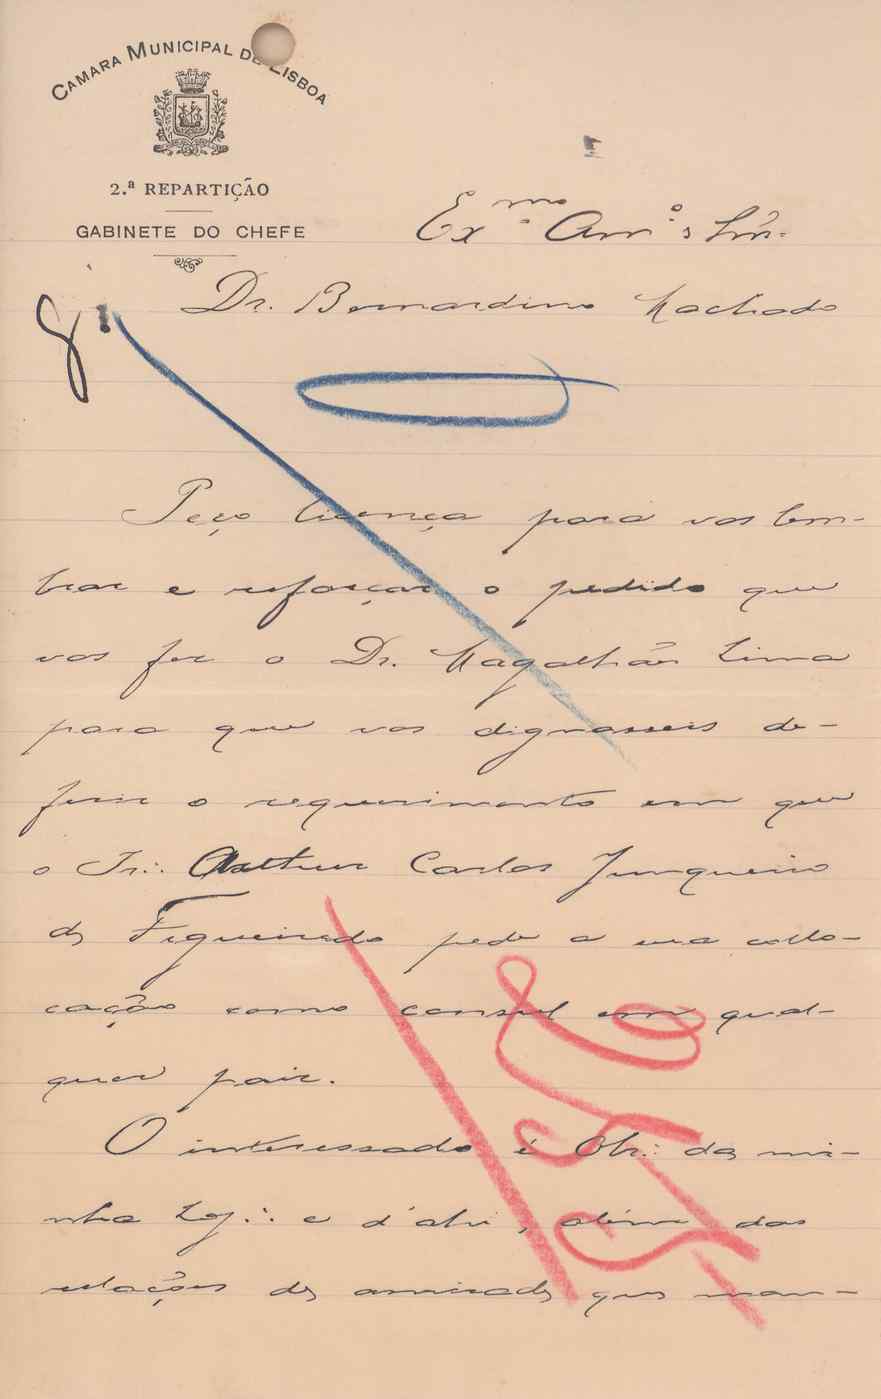 CAMARA MUNICIPAL DE LISBOA
2.ª REPARTIÇÃO
GABINETE DO CHEFE
Ex.mo Am.º e Ir∴
Dr. Bernardino Machado
Peço licença para vos lem-
brar e reforçar o pedido que
vos fez o Dr. Magalhães Lima
para que vos dignasseis de-
ferir o requerimento em que
o Sr. Arthur Carlos Junqueiro
de Figueiredo pede a sua collo-
cação como consul em qual-
quer paiz.
O interessado é Obr∴ da mi-
nha Loj∴ e d'ahi, além das
relações de amizade que man-